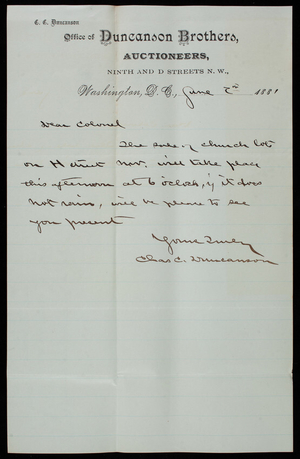 C. C. Duncanson
Office of Duncanson Brothers,
AUCTIONEERS,
NINTH AND D STREETS N. W.,
Washington, D. C., June 2nd 1881
Dear Colonel
The sale of church lot
on H street N.W. will take place
this afternoon at 6 o'clock, if it does
not rain, will be please to see
you present
Yours Truly
Chas C. Duncanson